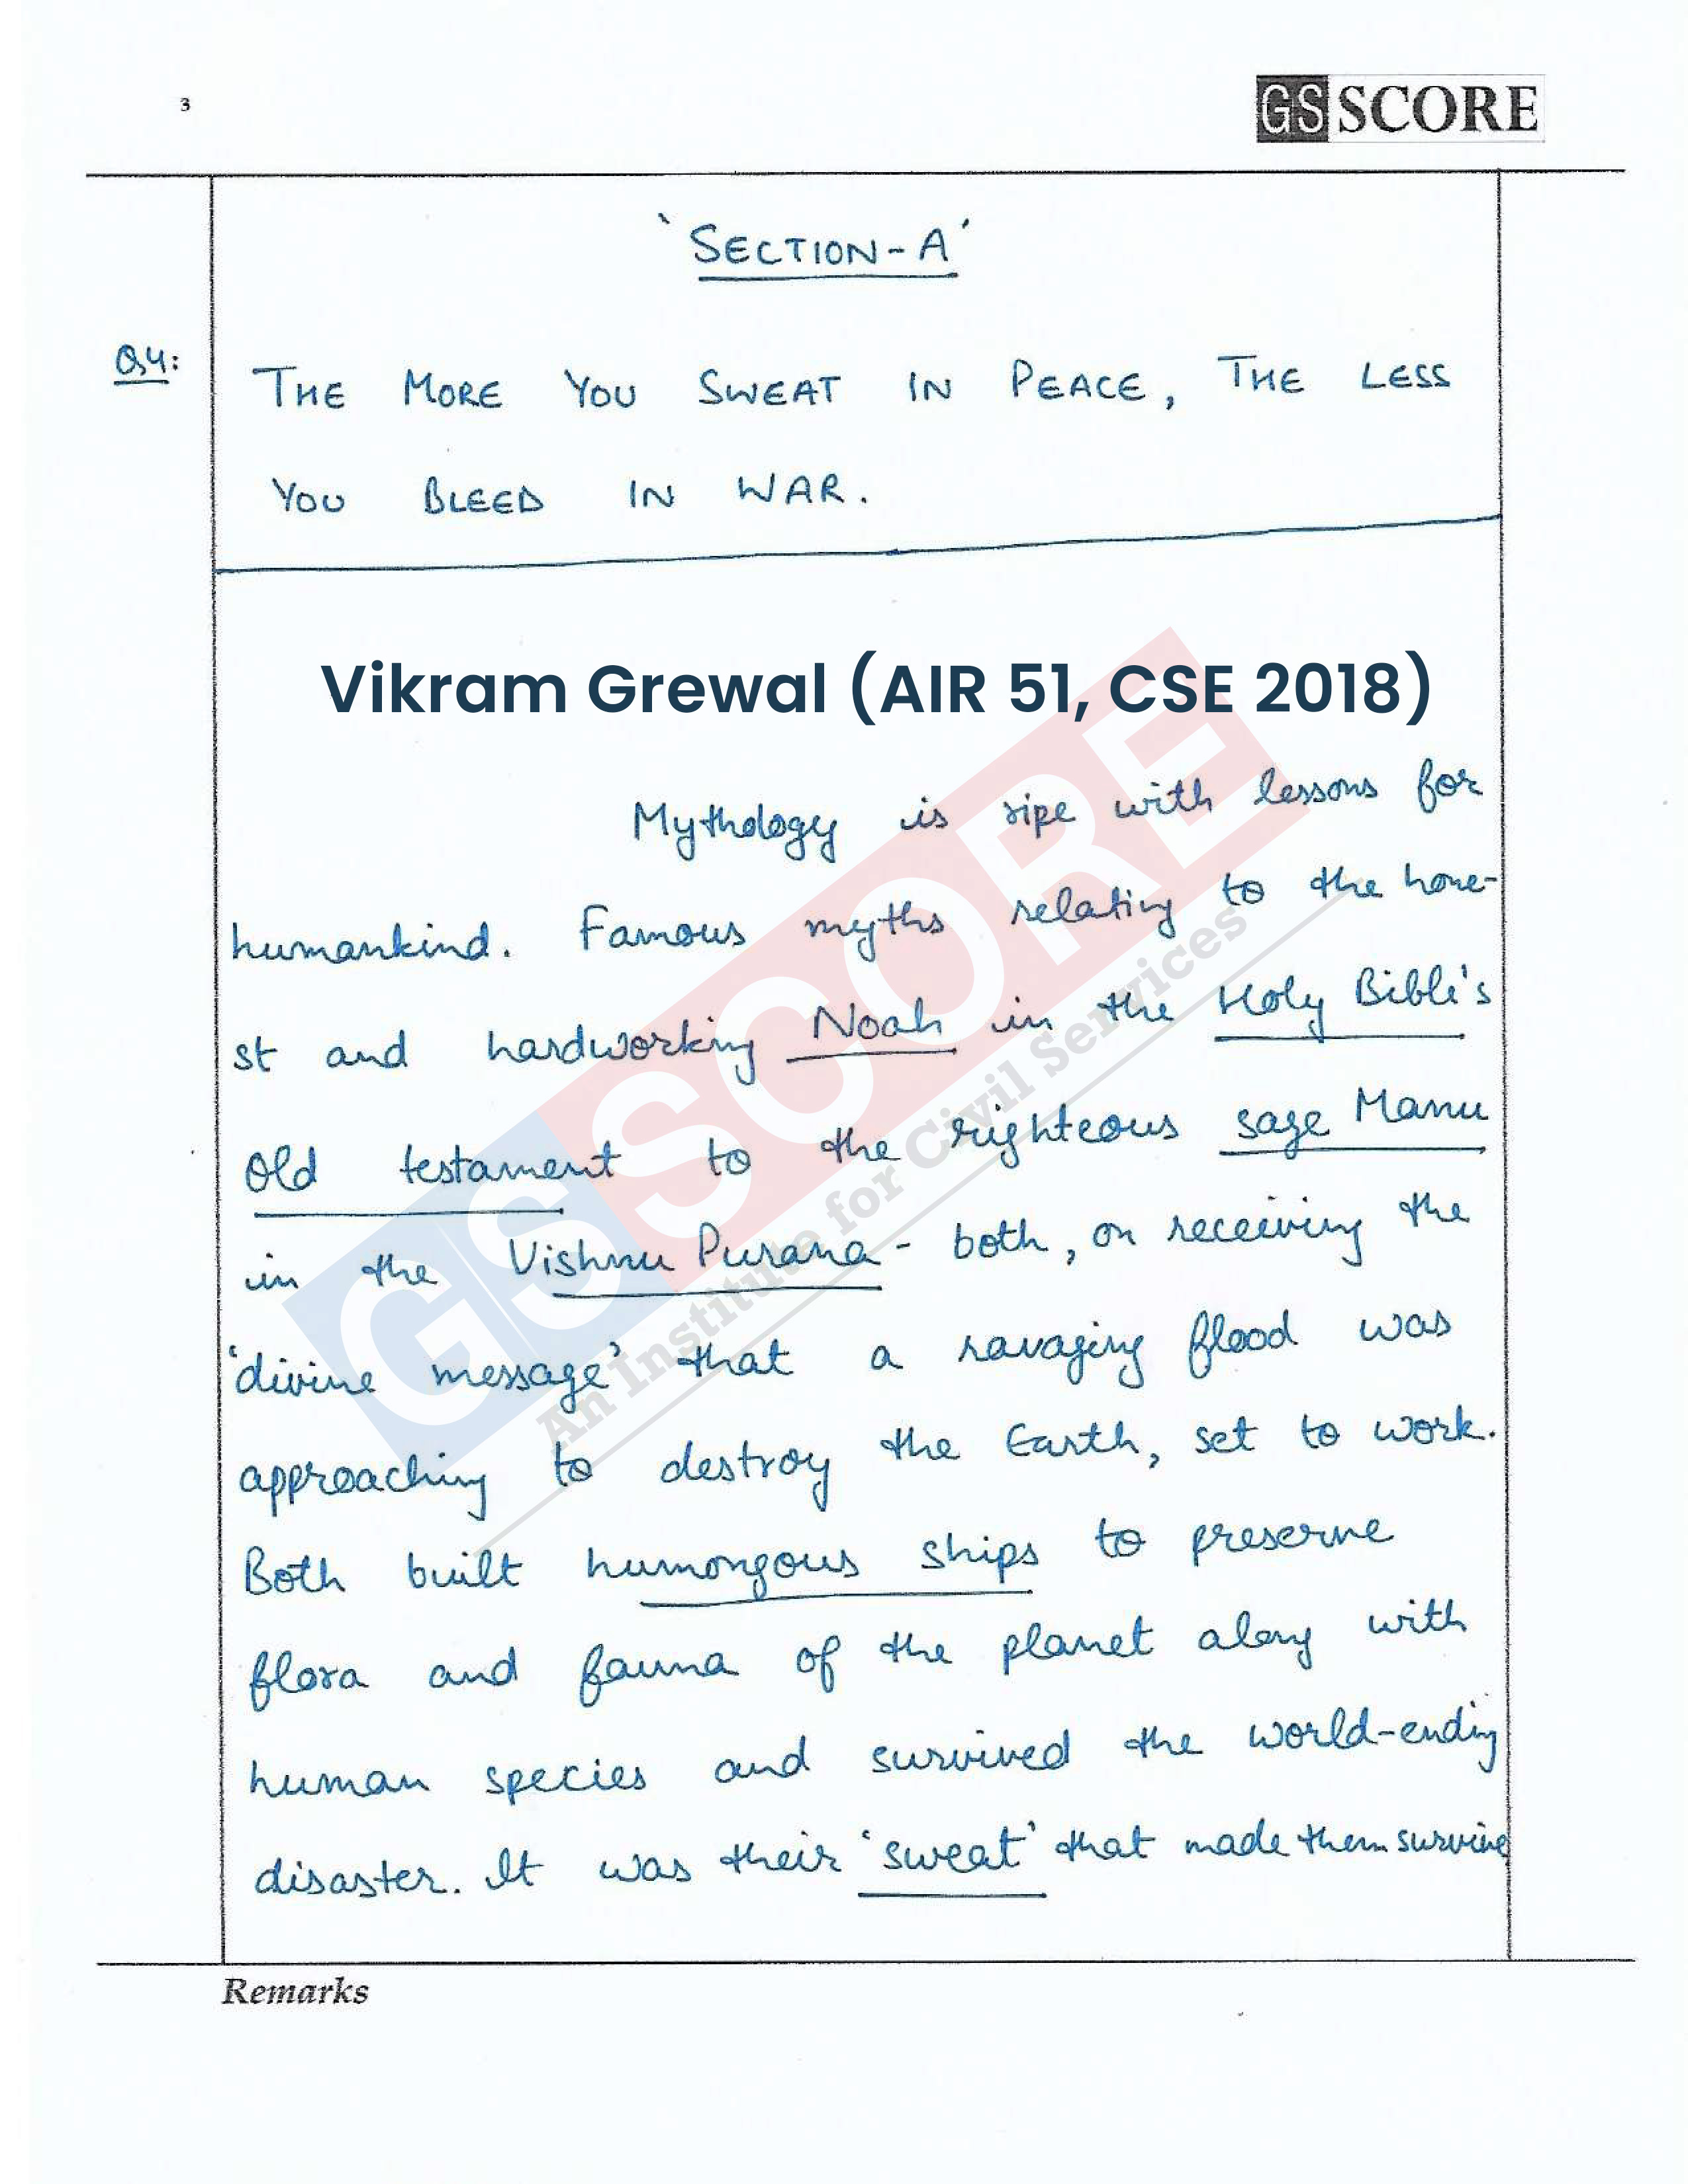 3
GS SCORE
'SECTION-A'
Q4:
THE MORE YOU SWEAT IN PEACE, THE LESS
YOU BLEED IN WAR.
Vikram Grewal (AIR 51, CSE 2018)
Mythology is ripe with lessons for
humankind. Famous myths relating to the hone-
st and hardworking Noah in the Holy Bible's
Old testament to the righteous sage Manu
in the Vishnu Purana - both, on receiving the
'divine message' that a ravaging flood was
approaching to destroy the Earth, set to work.
Both built humongous ships to preserve
flora and fauna of the planet along with
human species and survived the world-ending
disaster. It was their 'sweat' that made them survive
GSSCORE
An Institute for Civil Services
Remarks